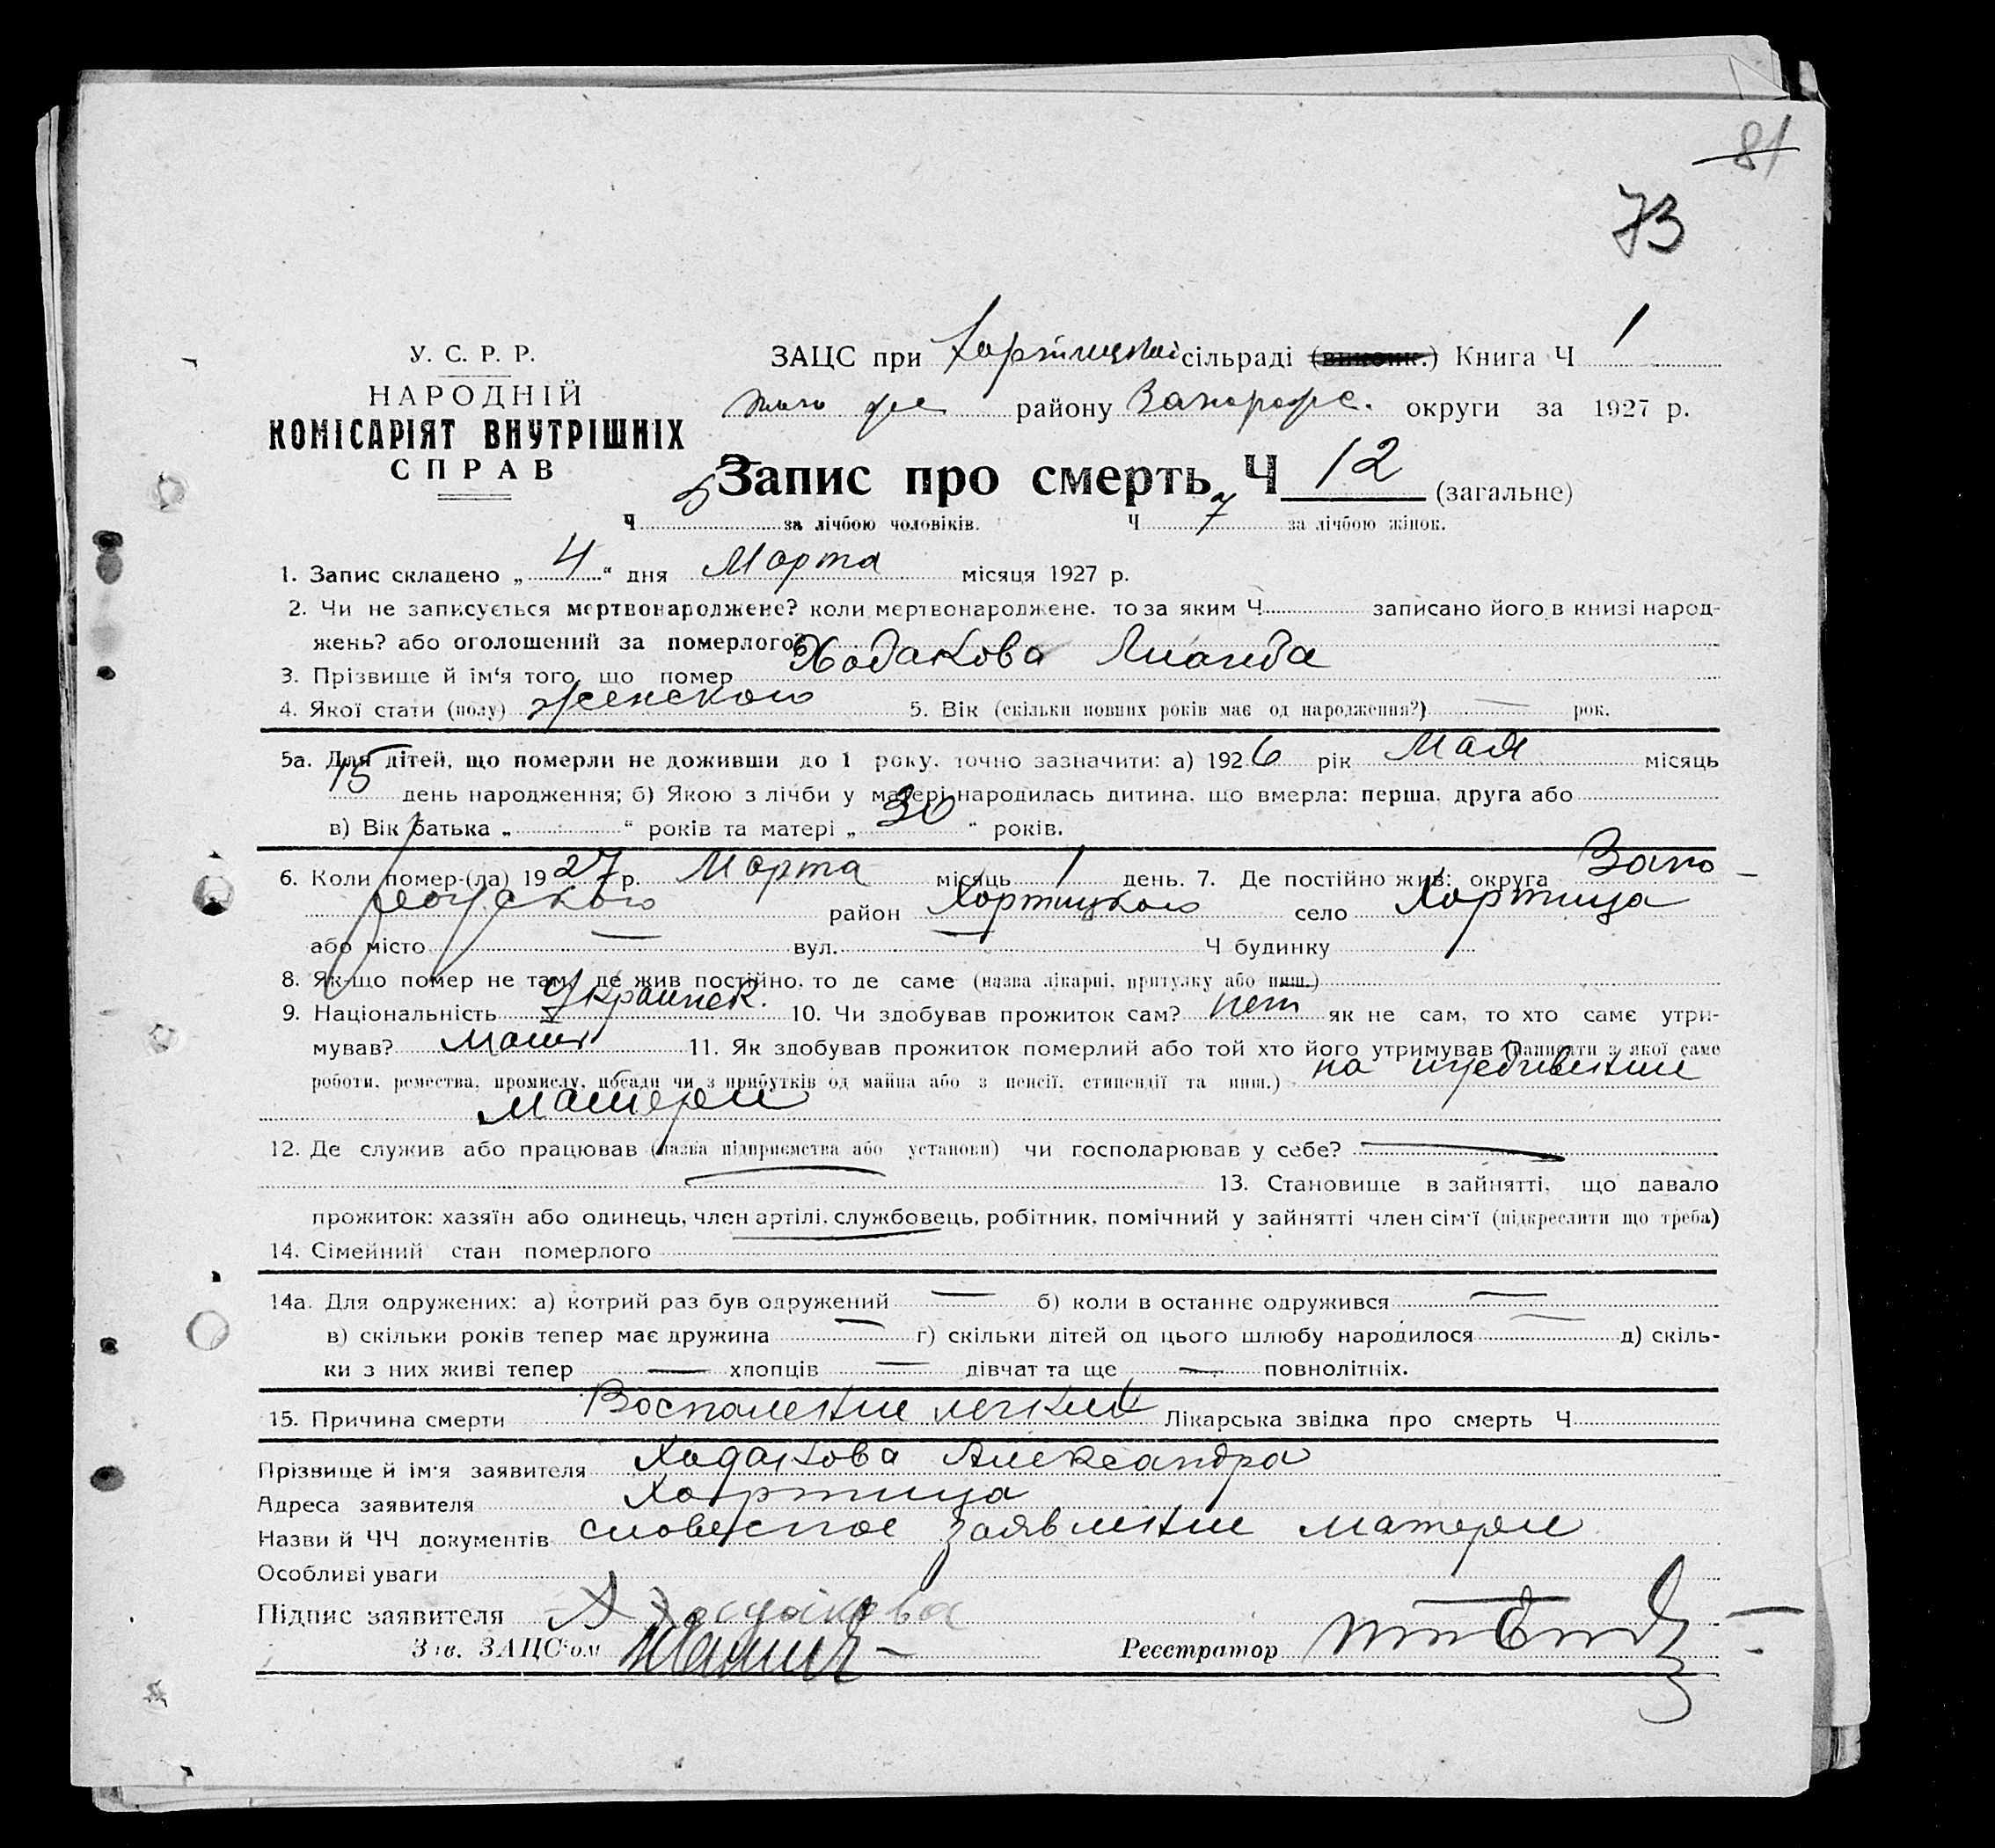 81
73
У. С. Р. Р.
НАРОДНІЙ
КОМІСАРІЯТ ВНУТРІШНІХ
СПРАВ
ЗАЦС при Хортицкой сільраді (виконк.) Книга Ч 1
того же району Запорожс. округи за 1927 р.
Запис про смерть Ч 12 (загальне)
Ч 5 за лічбою чоловіків. Ч 7 за лічбою жінок.
1. Запис складено „ 4 “ дня Марта місяця 1927 р.
2. Чи не записується мертвонароджене? коли мертвонароджене, то за яким Ч записано його в книзі народ-
жень? або оголошений за померлого?
3. Прізвище й ім‘я того, що помер Ходакова
4. Якої стати (полу) женского 5. Вік (скільки повних років має од народження?) — рок.
5а. Для дітей, що померли не доживши до 1 року, точно зазначити: а) 1926 рік Мая місяць
15 день народження; б) Якою з лічби у матері народилась дитина, що вмерла: перша, друга або
в) Вік батька „ “ років та матері „ 30 “ років.
6. Коли помер-(ла) 1927 р. Марта місяць 1 день. 7. Де постійно жив: округа Запо-
рожского район Хортицкого село Хортица
або місто — вул. — Ч будинку
8. Як-що помер не там, де жив постійно, то де саме (назва лікарні, притулку або инш.)
9. Національність Украинск. 10. Чи здобував прожиток сам? нет як не сам, то хто саме утри-
мував? Мать 11. Як здобував прожиток померлий або той хто його утримував (написати з якої саме
роботи, ремества, промислу, посади чи з прибутків од майна або з пенсії, стипендії та инш.) на иждивении
Матери
12. Де служив або працював (назва підприємства або установи) чи господарював у себе? —
— 13. Становище в зайнятті, що давало
прожиток: хазяїн або одинець, член артілі, службовець, робітник, помічний у зайнятті член сім‘ї (підкреслити що треба)
14. Сімейний стан померлого
14а. Для одружених: а) котрий раз був одружений — б) коли в останнє одружився —
в) скільки років тепер має дружина — г) скільки дітей од цього шлюбу народилося — д) скіль-
ки з них живі тепер — хлопців — дівчат та ще — повнолітніх.
15. Причина смерти Воспаление легких Лікарська звідка про смерть Ч
Прізвище й ім‘я заявителя Ходакова Александра
Адреса заявителя Хортица
Назви й ЧЧ документів словесное заявление матери
Особливі уваги
Підпис заявителя А Ходакова
Зав. ЗАЦС‘ом
Реєстратор